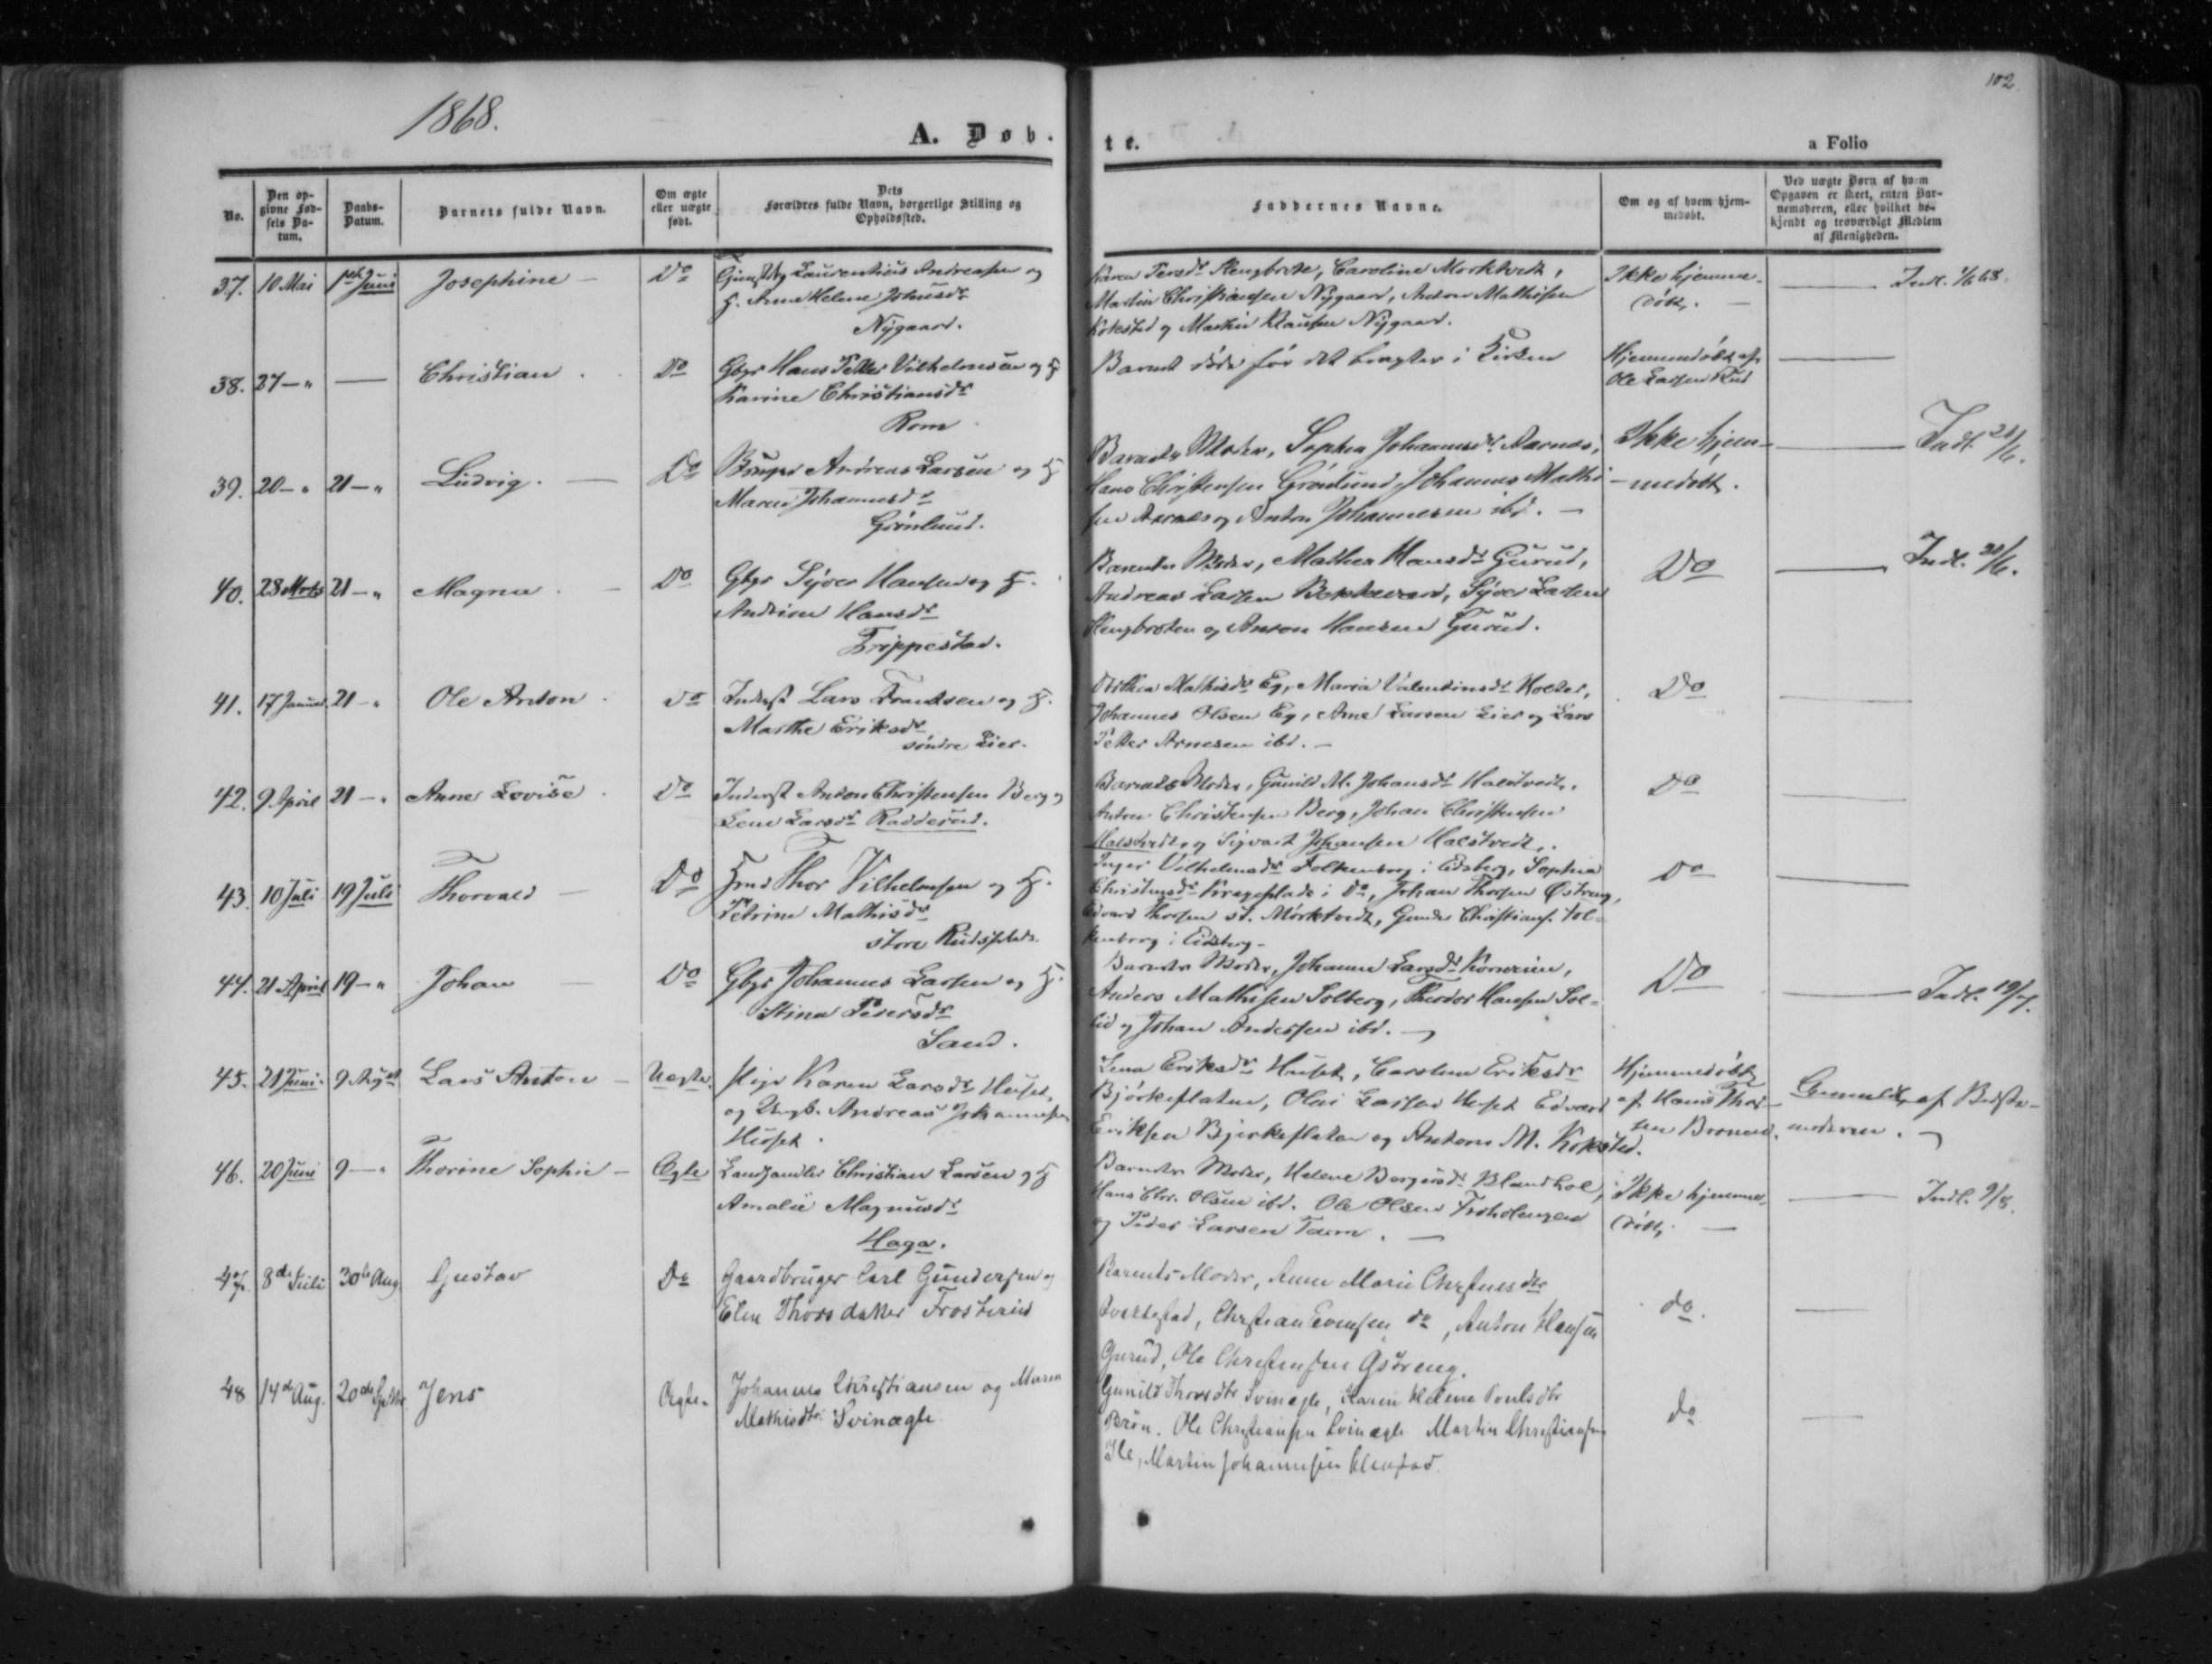 102.
1868.
A. Døb-
te.
a Folio
No.
Den op-
givne Fød-
sels Da-
tum.
Daabs-
Datum.
Barnets fulde Navn.
Om ægte
eller uægte
født.
Dets
Forældres fulde Navn, borgerlige Stilling og
Opholdssted.
Faddernes Navne.
Om og af hvem hjem-
medøbt.
Ved uægte Børn af hvem
Opgaven er skeet, enten Bar-
nemoderen, eller hvilket be-
kjendt og troværdigt Medlem
af Menigheden.
37. 10 Mai 1ste Juni Josephine — Do
Laurentius Andreasen og
H. Anne Helene Johnsdr
Nygaard.
Karen Persdr Stengbrote, Caroline Morktvedt,
Martin Christiansen Nygaard, Anton Mathisen
Koksted og Martin Clausen Nygaard.
Ikke hjemme-
døbt. —
Indl. 1/6 68.
38. 27 — " — Christian . Do
Gbgr Hans Petter Vilhelmsen og H
Karine Christiansdr
Rom
Barnet døde før det bragtes i Kirken
Hjemmedøbt af
Ole Larsen Rud
39. 20 — " 21 — " Ludvig. — Do
Bruger Andreas Larsen og H
Maren Johannesdr
Grønlund.
Barnets Moder, Sophia Johannesdr Aarnæs,
Hans Christensen Grønlund, Johannes Mathi-
sen Aarnæs og Anton Johannesen ibd. —
Ikke hjem-
medøbt.
Indl. 21/6.
40. 28 Marts 21 — " Magna . — Do
Gbgr Syver Hansen og H.
Andrine Hansdr
Trippestad.
Barnets Moder, Mathea Hansdr Gurud,
Andreas Larsen Bekkevard, Syver Larsen
Stengbroten og Anton Hansen Gurud.
Do
Indl. 21/6.
41. 17 Januar 21 — " Ole Anton . Do
Inderst Lars Frantsen og H.
Marthe Eriksdr
søndre Lier.
Dorthea Mathisdr Eg, Maria Valentinsdr Holter,
Johannes Olsen Eg, Arne Larsen Lier og Lars
Petter Arnesen ibd. —
Do
42. 9 April 21 — " Anne Lovise . Do
Inderst Anton Christensen Berg og
Lene Larsdr Radderud.
Barnets Moder, Gunild M. Johansdr Halstvedt,
Anton Christensen Berg, Johan Christensen
Halstvedt og Sigvart Johansen Halstvedt.
Do
43. 10 Juli 19 Juli Thorvald — Do
Hmd Thor Vilhelmsen og H.
Petrine Mathisdr
store Rudsplads.
Inger Vilhelmsdr Folkenborg i Eidsberg, Sophia
Christensdr Krageplads i Do, Johan Thorsen Østreng,
Edvard Thorsen st. Mørktvedt, Gunder Christians. Fol-
kenborg i Eidsberg —
Do
44. 21 April 19 — " Johan — Do
Gbgr Johannes Larsen og H.
Stina Petersdr
Sand.
Barnets Moder, Johanne Larsdr
Anders Mathisen Solberg, Theodor Hansen Sol-
lid og Johan Andersen ibd. —
Do
Indl. 19/7.
45. 21 Juni 9 Augst Lars Anton — Uægte.
Pige Karen Larsdr Huset,
og Ungk. Andreas Johannesen
Huset.
Lena Eriksdr Huset, Caroline Eriksdr
Bjørkeplaten, Olai Larsen Huset Edvard
Eriksen Bjerkeplaten og Anton M. Koksted.
Hjemmedøbt
af Hans Thor-
sen
Anmeldt af Bedste-
moderen. —
46. 20 Juni 9 — " Thorine Sophie — Ægte
Landhandler Christian Larsen og H
Amalie Magnusdr
Haga.
Barnets Moder, Helene Borgersdr Blandhol,
Hans Chr. Olsen ibd. Ole Olsen
og Peder Larsen Tarm. —
Ikke hjemme-
døbt. —
Indl. 9/8.
47. 8de Juli 30te Aug. Gustav Do
Gaardbruger Carl Gundersen og
Elen Thorsdatter Frosterud
Barnets Moder, Anne Marie Christensdtr
Christian Evensen do, Anton Hansen
Gurud, Ole Christensen
do.
48 14de Aug. 20de Septbr Jens Ægte.
Johannes Christiansen og Maren
Mathisdtr. Svinægle
Gunild Thorsdtr Svinægle, Karen Helene Poulsdtr
Brøn. Ole Christiansen Svinægle Martin Christiansen
Ile, Martin Johannesen
do